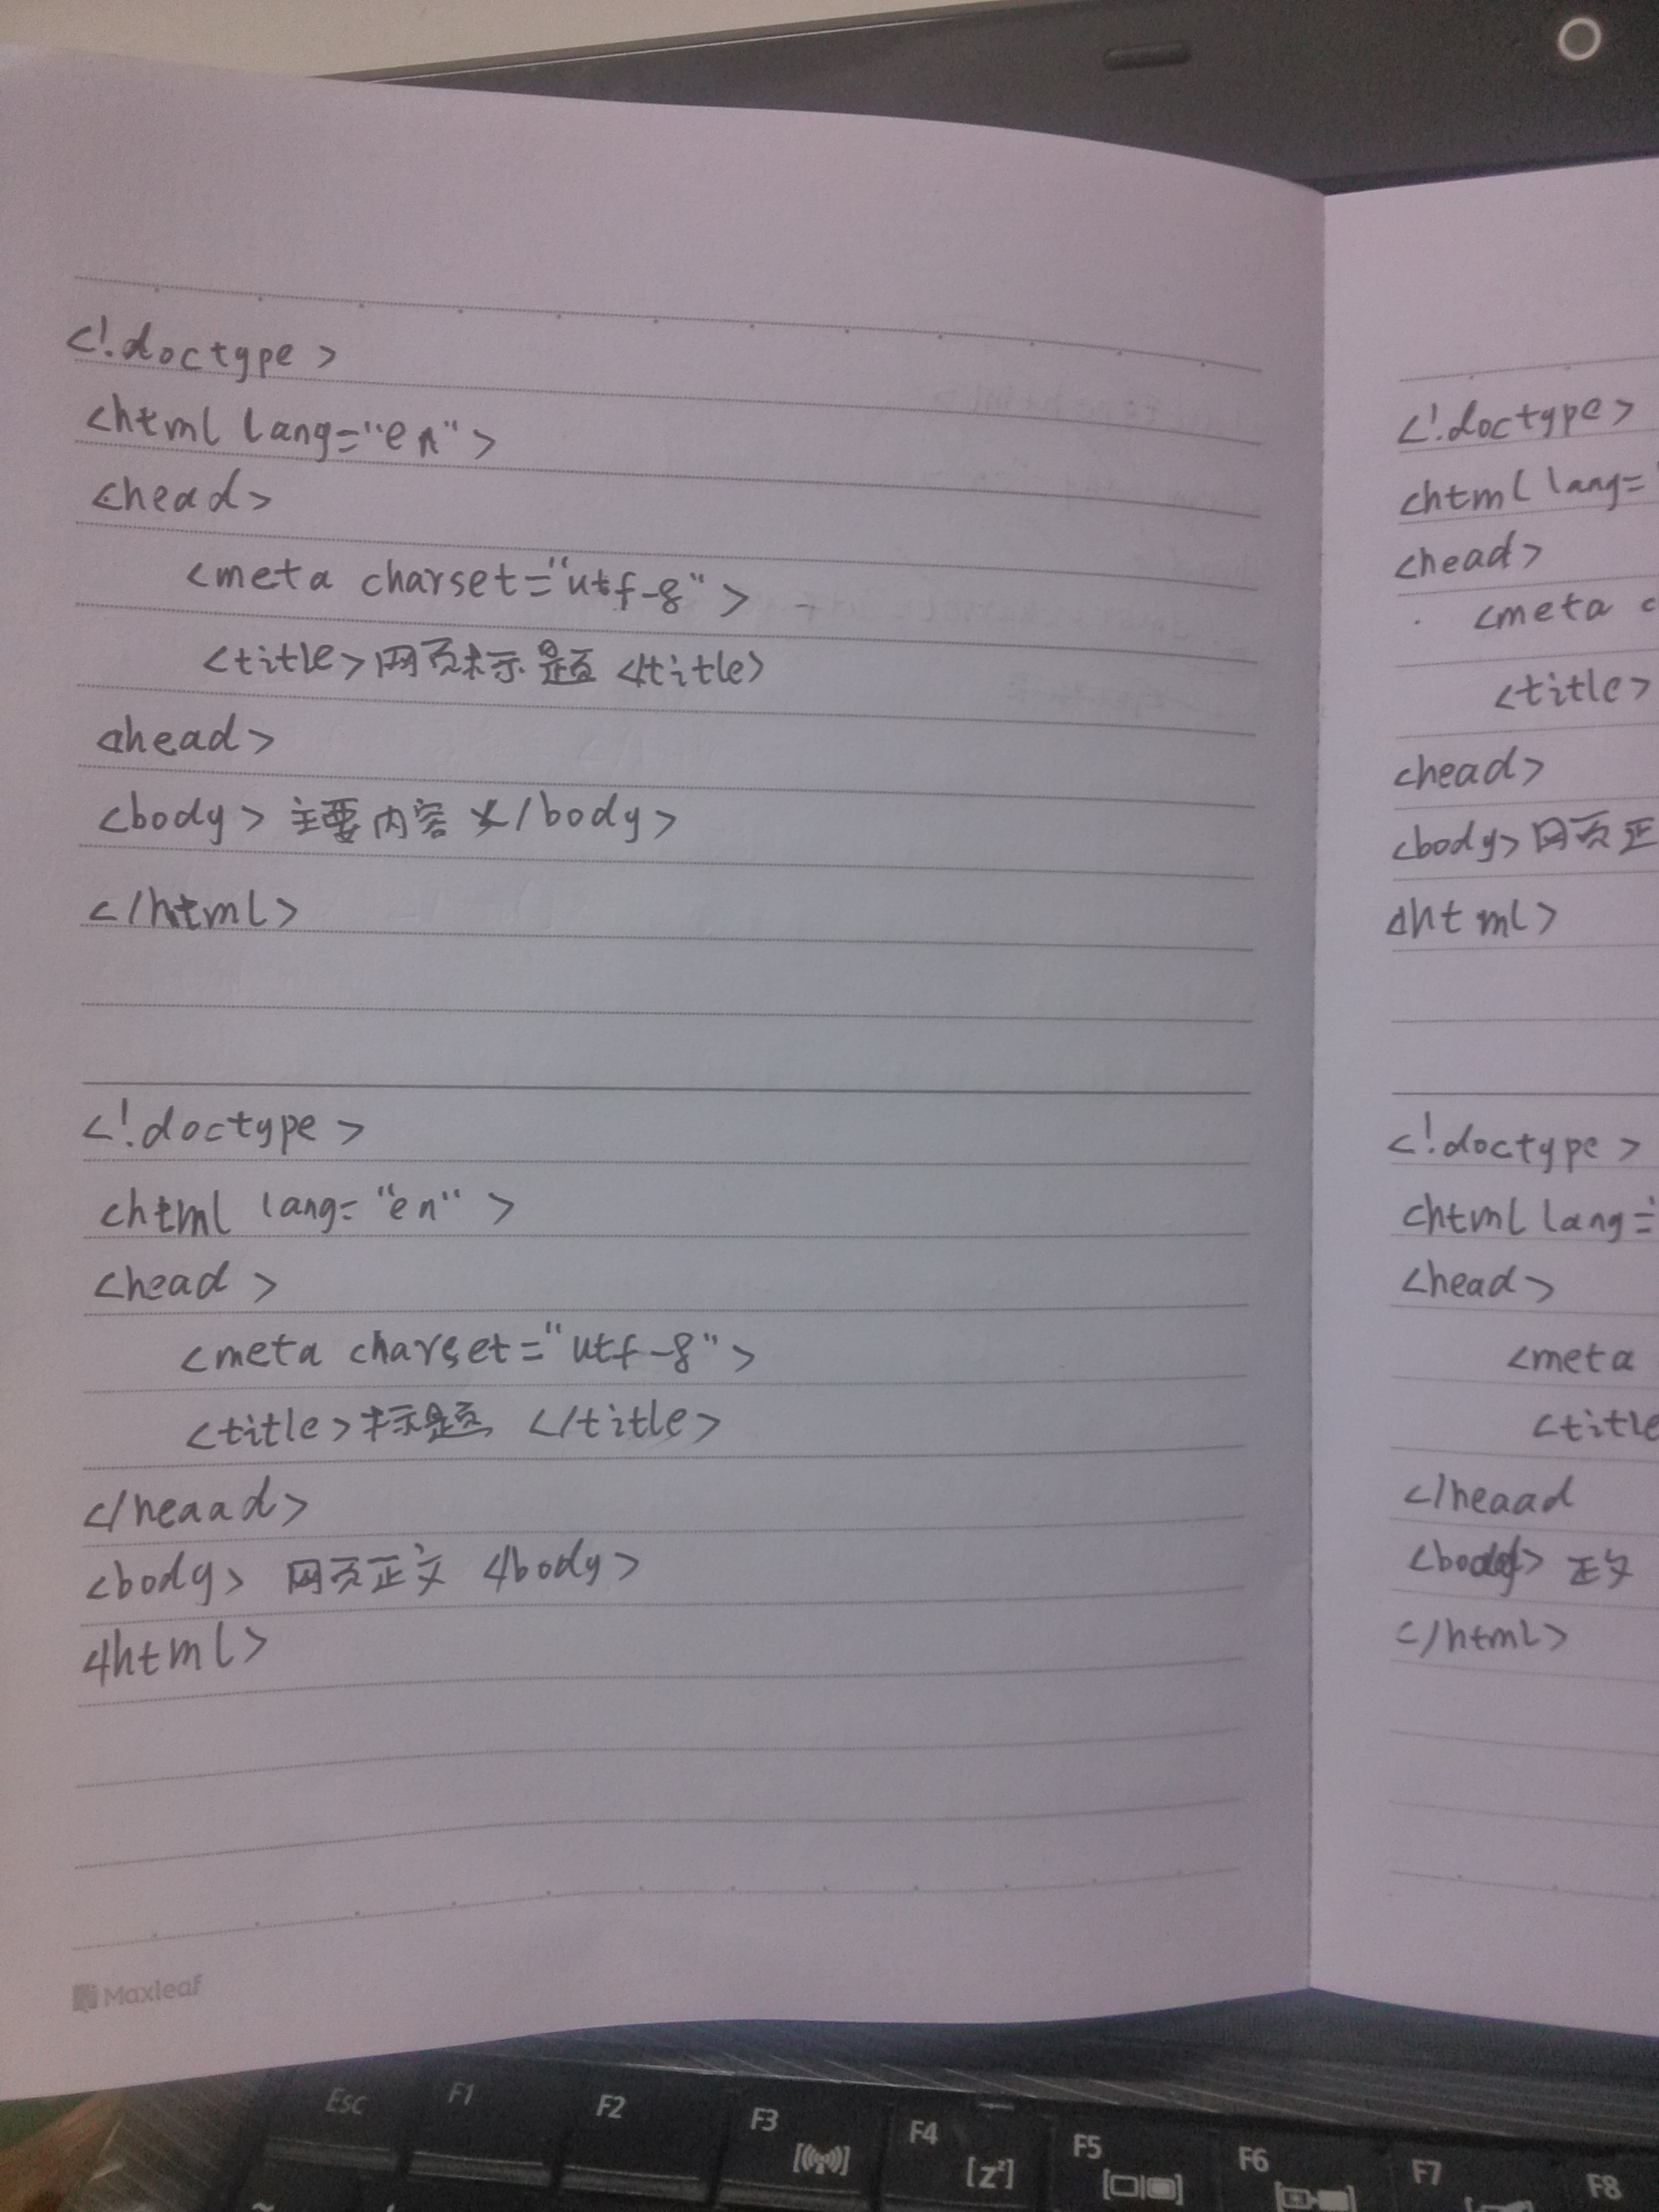 <!doctype>
<html lang="en">
<head>
<meta charset="utf-8">
<title>网页标题</title>
</head>
<body>主要内容</body>
</html>
<!doctype>
<html lang="en">
<head>
<meta charset="utf-8">
<title>标题</title>
</heaad>
<body>网页正文</body>
</html>
Maxleaf
<!doctype>
<html lang=
<head>
<meta c
<title>
<head>
<body>网页正
</html>
<!doctype>
<html lang=
<head>
<meta
<title
</heaad
正文
</html>
Esc F1 F2 F3 F4 F5 F6 F7 F8
[z